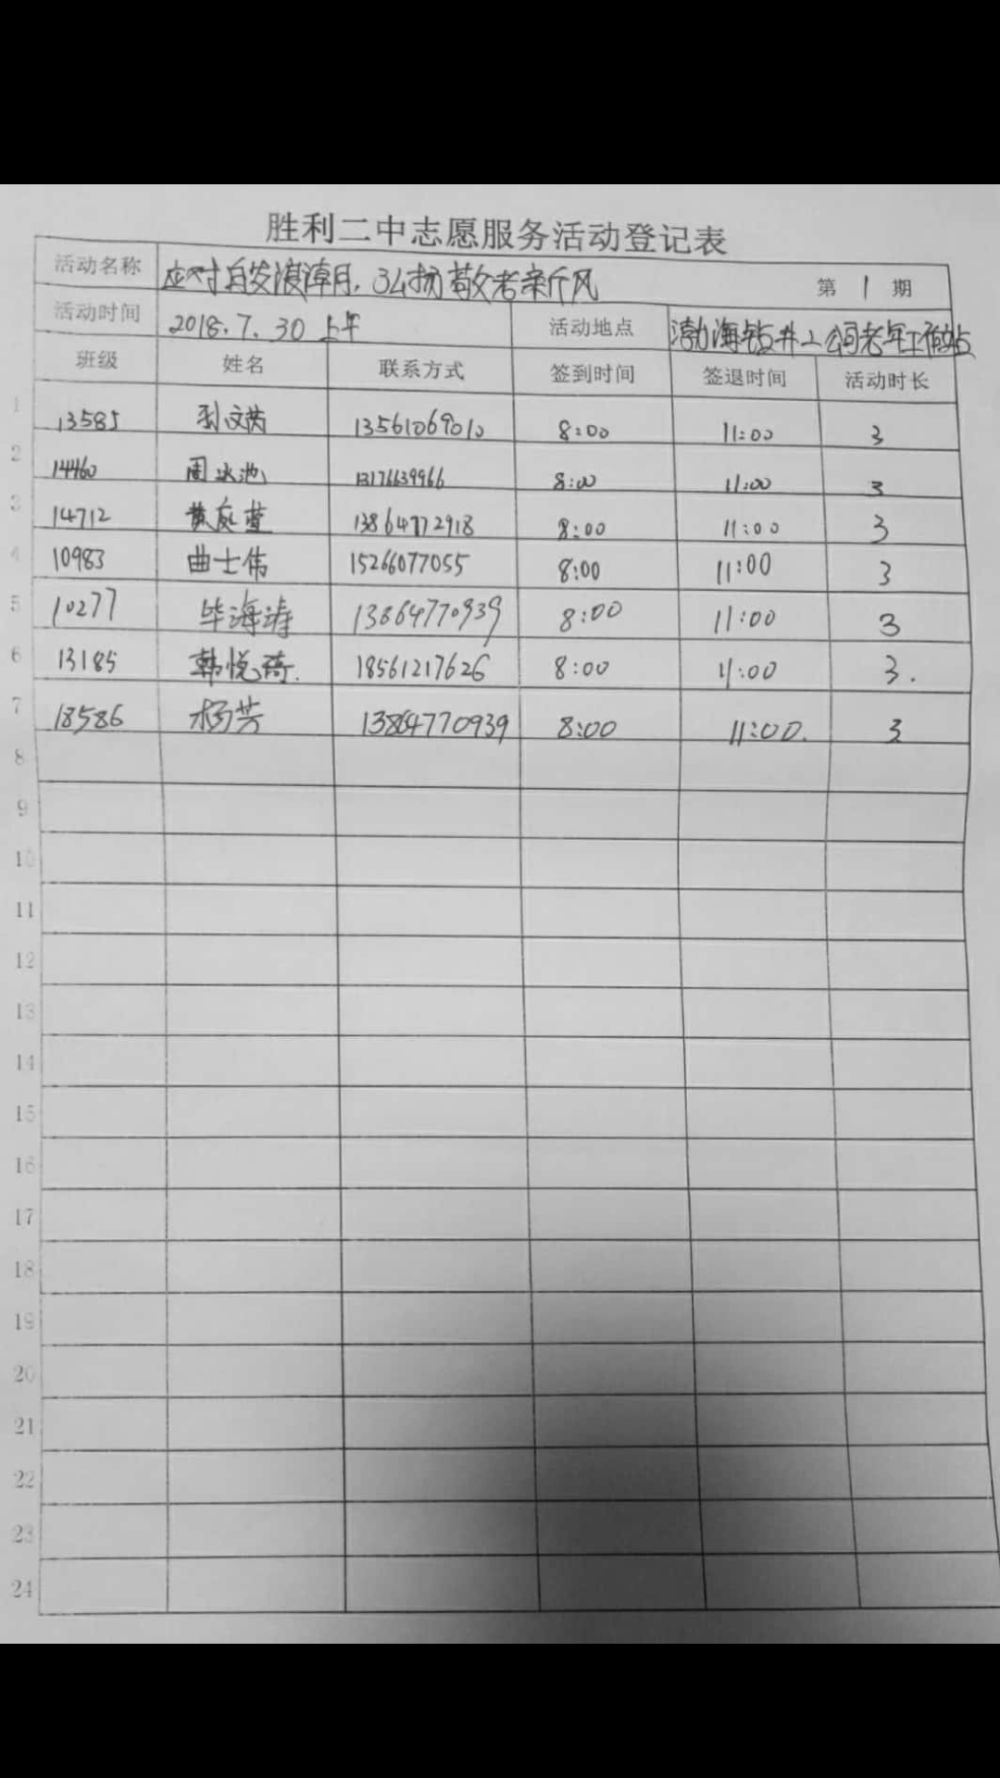 胜利二中志愿服务活动登记表
活动名称 应对白发浪潮，弘扬敬老新风 第 1 期
活动时间 2018.7.30 上午 活动地点 渤海钻井二公司老年工作站
班级 姓名 联系方式 签到时间 签退时间 活动时长
1 13585 孙文茜 13561069010 8:00 11:00 3
2 14460 周冰池 13176639966 8:00 11:00 3
3 14712 黄庭萱 13864772918 8:00 11:00 3
4 10983 曲士伟 15266077055 8:00 11:00 3
5 10277 毕海涛 13864770939 8:00 11:00 3
6 13185 韩悦琦. 18561217626 8:00 11:00 3.
7 18586 杨芳 13864770939 8:00 11:00. 3
8
9
10
11
12
13
14
15
16
17
18
19
20
21
22
23
24